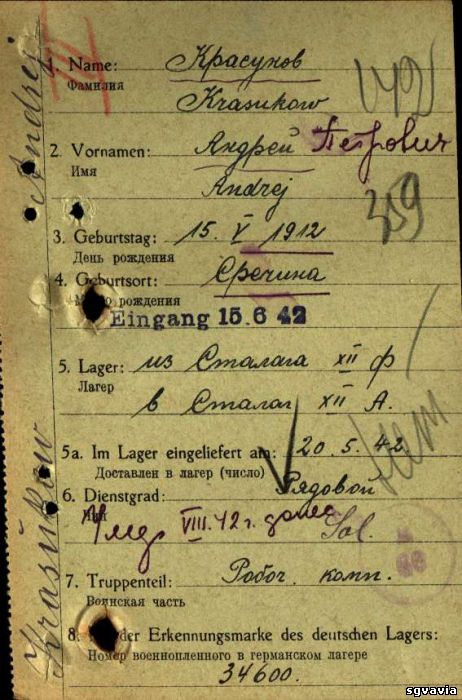 1. Name: Красуков
Фамилия
Krasukow
2. Vornamen: Андрей Петрович
Имя
Andrej
3. Geburtstag: 15. V 1912
День рождения
4. Geburtsort:
рождения
Eingang 15.6 42
5. Lager: из Сталага XII Ф
Лагер
в Сталаг XII А.
5a. Im Lager eingeliefert am: 20. 5. 42
Доставлен в лагер (число)
6. Dienstgrad: Рядовой
Чин
VIII. 42 г. Sol.
7. Truppenteil: Рабоч. комп.
Воинская часть
8. der Erkennungsmarke des deutschen Lagers:
Номер военнопленного в германском лагере
34600.
Krasukow Andrej
359
sgvavia